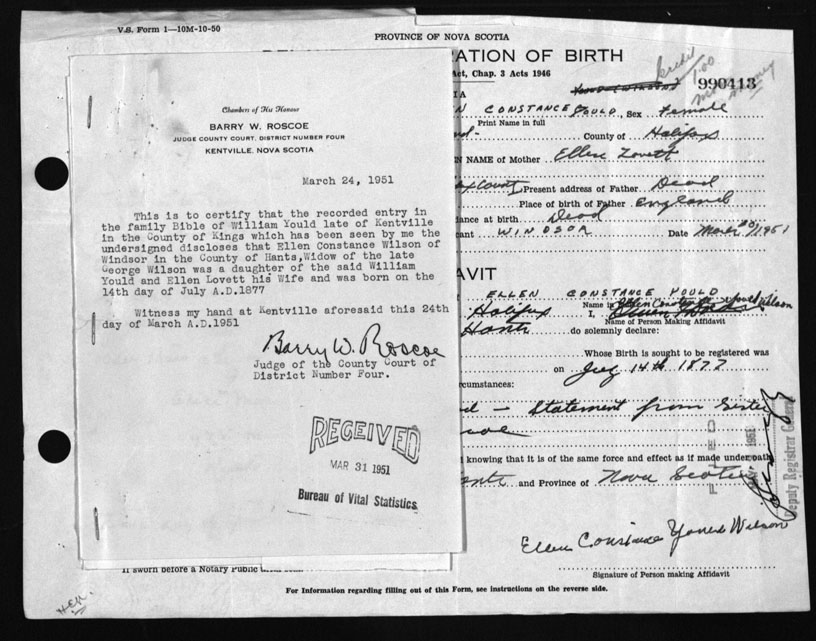 V.S. Form 1—10M-10-50
PROVINCE OF NOVA SCOTIA
RATION OF BIRTH
Act, Chap. 3 Acts 1946
990413
credit
1.00
money
Chambers of His Honour
BARRY W. ROSCOE
JUDGE COUNTY COURT, DISTRICT NUMBER FOUR
KENTVILLE, NOVA SCOTIA
March 24, 1951
This is to certify that the recorded entry in
the family Bible of William Yould late of Kentville
in the County of Kings which has been seen by me the
undersigned discloses that Ellen Constance Wilson of
Windsor in the County of Hants, Widow of the late
George Wilson was a daughter of the said William
Yould and Ellen Lovett his Wife and was born on the
14th day of July A.D.1877
Witness my hand at Kentville aforesaid this 24th
day of March A.D.1951
Barry W. Roscoe
Judge of the County Court of
District Number Four.
RECEIVED
MAR 31 1951
Bureau of Vital Statistics
N CONSTANCE YOULD, Sex Female
Print Name in full
County of Halifax
N NAME of Mother Ellen Lovett
Present address of Father Dead
Place of birth of Father England
ance at birth Dead
ant WINDSOR Date March 20/1951
AVIT
ELLEN CONSTANCE YOULD
Halifax I, Ellen Constance Yould Wilson
Name in
Name of Person Making Affidavit
Hants do solemnly declare:
Whose Birth is sought to be registered was
on July 14th 1877
cumstances:
d — Statement from Sister
coe
knowing that it is of the same force and effect as if made under oath
Hants and Province of Nova Scotia
FILED
1951
Deputy Registrar General
Ellen Constance Yould Wilson
Signature of Person making Affidavit
If sworn before a Notary Public
For Information regarding filling out of this Form, see instructions on the reverse side.